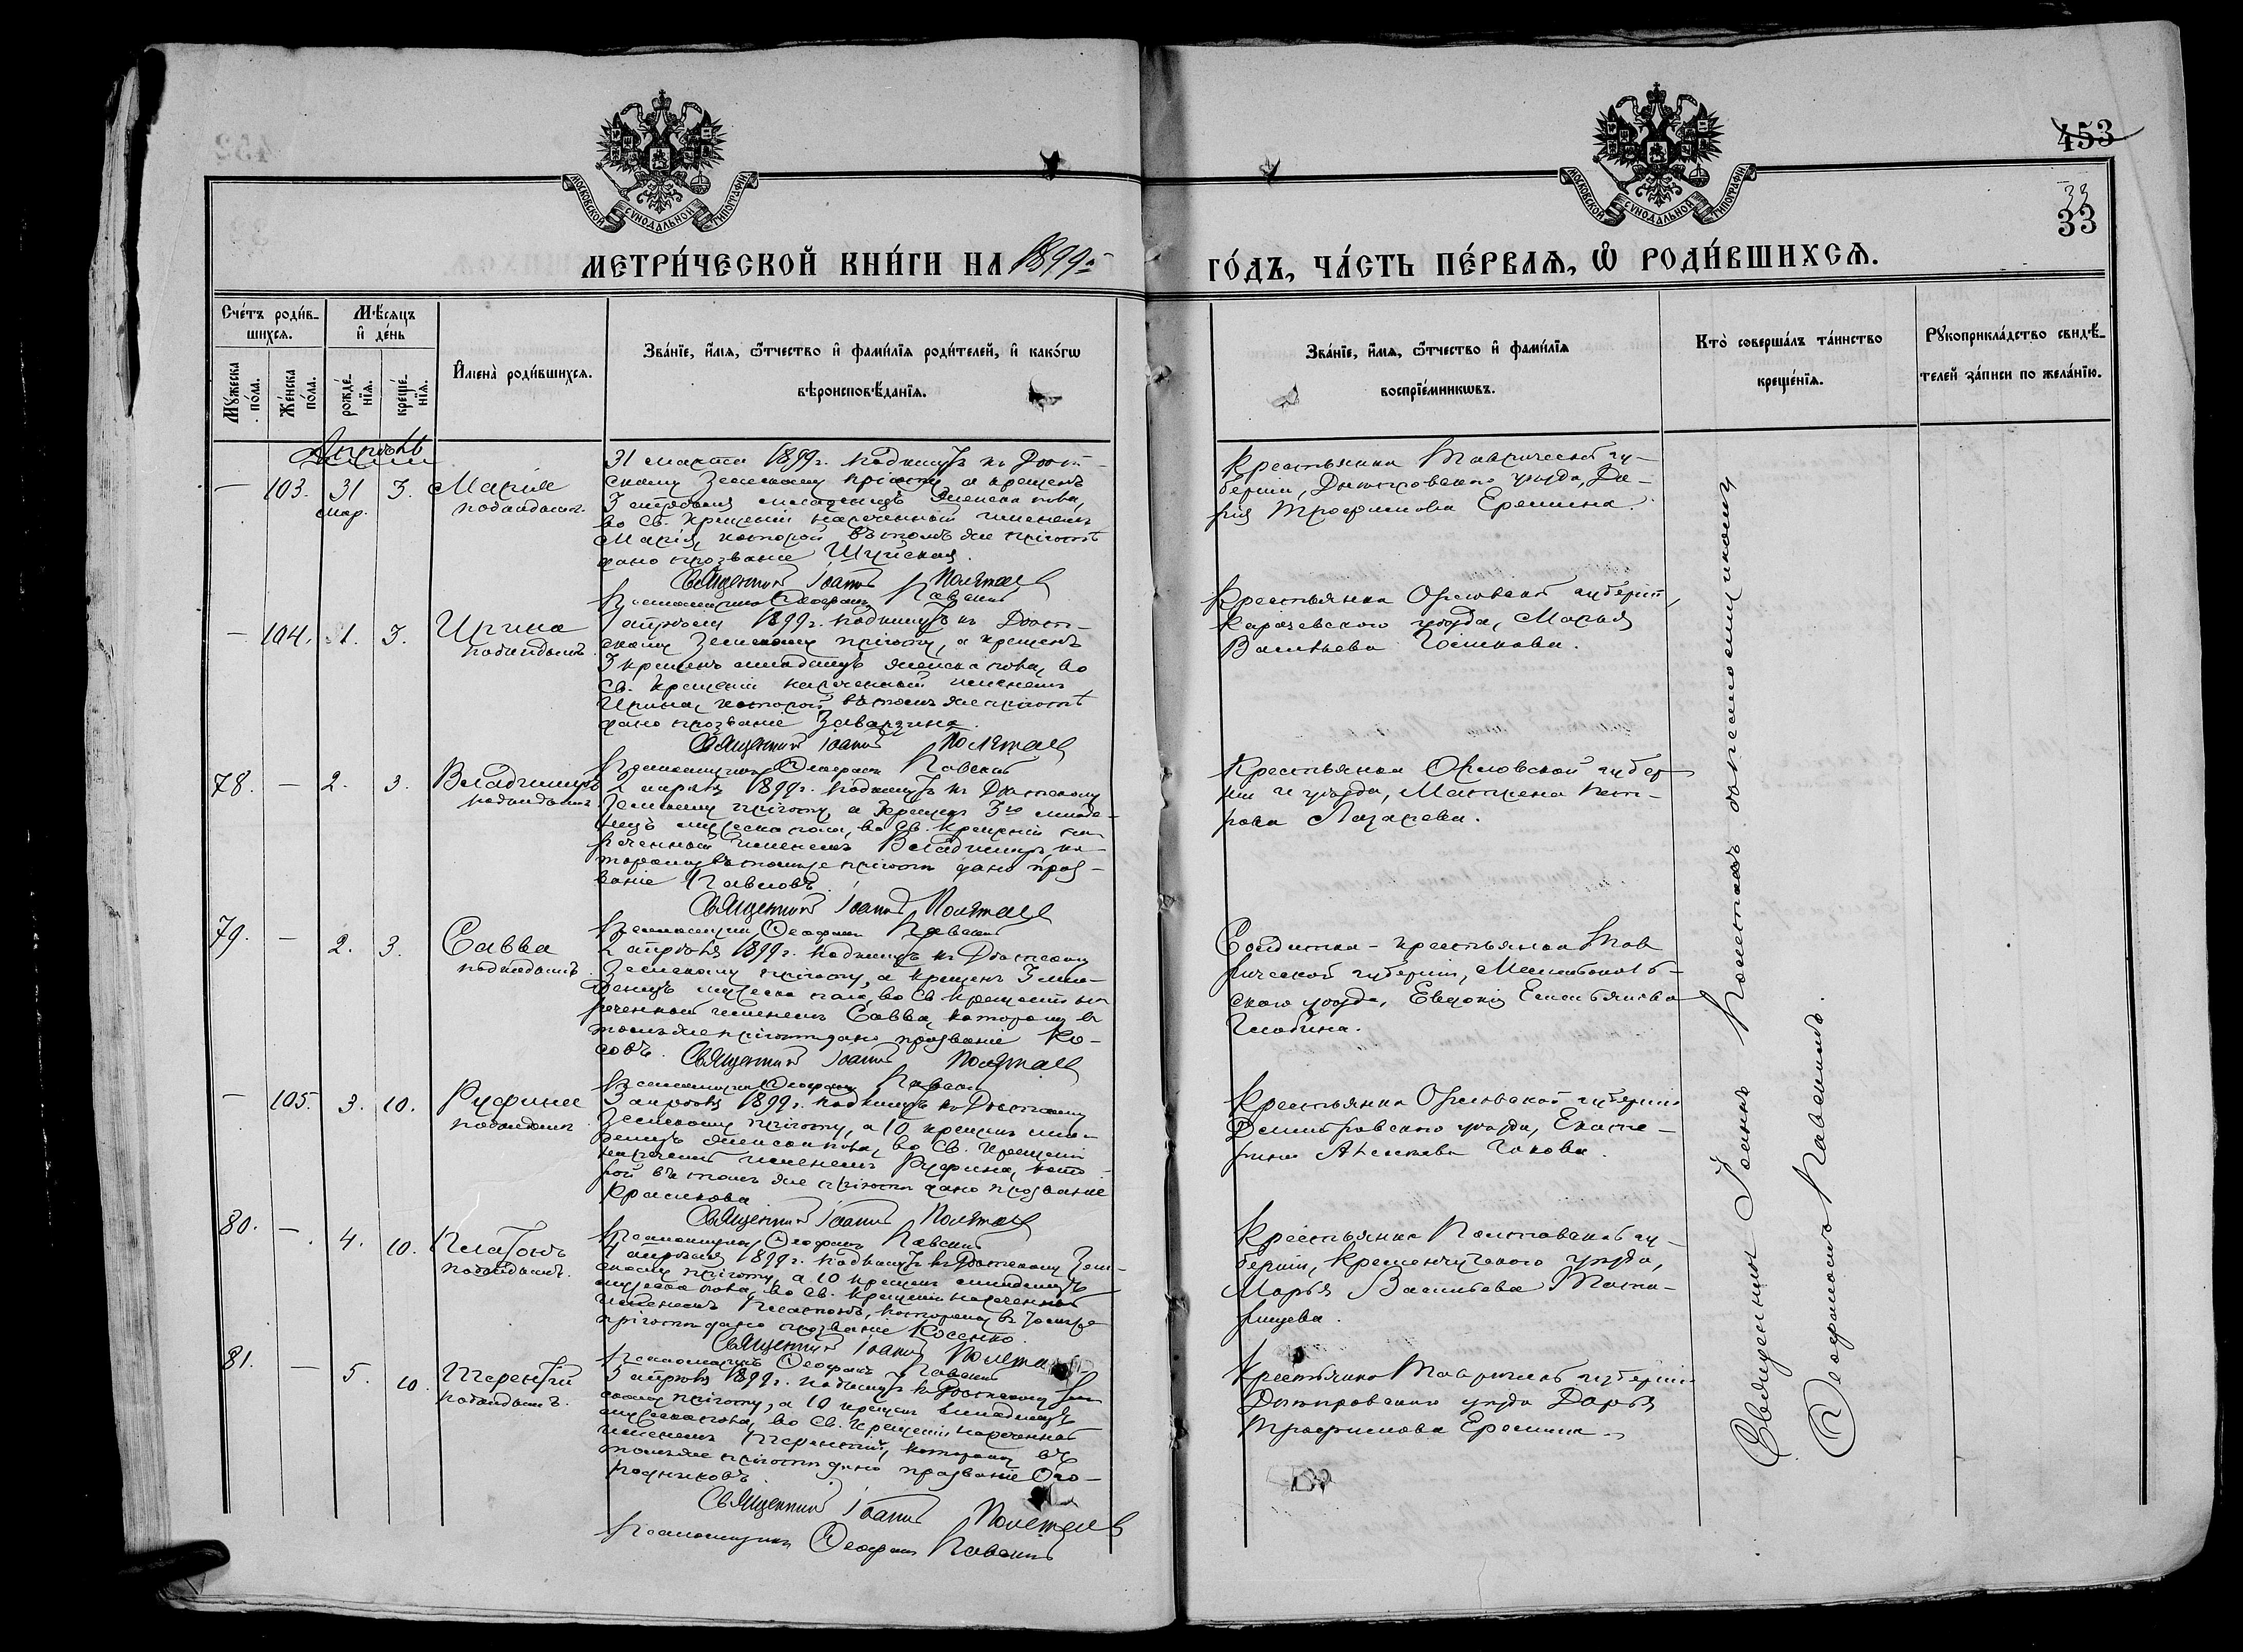 453
33
33
МОСКОВСКОЙ СѴНОДАЛЬНОЙ ТИПОГРАФІИ
МОСКОВСКОЙ СѴНОДАЛЬНОЙ ТИПОГРАФІИ
МЕТРИ́ЧЕСКОЙ КНИ́ГИ НА 1899 г.
ГО́ДЪ, ЧА́СТЬ ПЕ́РВАѦ, Ѽ РОДИ́ВШИХСѦ.
Сче́тъ роди́в-
шихсѧ.
Мꙋ́жеска по́ла.
Же́нска по́ла.
Мѣ́сѧцъ и҆ де́нь
рожде́нїѧ.
креще́нїѧ.
И҆мена̀ роди́вшихсѧ.
Зва́нїе, и҆́мѧ, ѻ҆́тчество и҆ фами́лїѧ роди́телей, и҆ како́гѡ
вѣроисповѣ́данїѧ.
Зва́нїе, и҆́мѧ, ѻ҆́тчество и҆ фами́лїѧ
воспрїе́мникѡвъ.
Кто̀ соверша́лъ та́инство
креще́нїѧ.
Рꙋкоприкла́дство свидѣ́-
телей за́писи по жела́нїю.
Апрѣль
— 103. 31 мар. 3. Марія
подкидышъ.
31 марта 1899 г. подкинутъ къ
скому Земскому пріюту, а крещенъ
3 апрѣля младенецъ женска пола,
во Св. крещеніи нареченный именемъ
Марія, которой въ томъ же пріютѣ
дано прозваніе Шуйская.
Священникъ Іоаннъ
Псаломщикъ Ѳеофанъ
Крестьянка Таврической гу-
берніи, Днѣпровскаго уѣзда, Да-
рія Трофимова Еремина.
— 104. 1. 3. Ирина
подкидышъ.
1 апрѣля 1899 г. подкинутъ къ
скому Земскому пріюту, а крещенъ
3 крещенъ младенецъ женска пола, во
Св. крещеніи нареченный именемъ
Ирина, которой въ томъ же пріютѣ
дано прозваніе Заварзина.
Священникъ Іоаннъ
Псаломщикъ Ѳеофанъ
Крестьянка Орловской губерніи,
Карачевскаго уѣзда, Марья
Васильева
78. — 2. 3. Владиміръ
подкидышъ.
2 апрѣля 1899 г. подкинутъ къ
Земскому пріюту, а крещенъ 3го младе-
нецъ мужеска пола, во Св. крещеніи на-
реченный именемъ Владиміръ, ко-
торому въ томъ же пріютѣ дано проз-
ваніе Павловъ.
Священникъ Іоаннъ
Псаломщикъ Ѳеофанъ
Крестьянка Орловской губер-
ніи и уѣзда, Матрена Пет-
рова Лазарева.
79. — 2. 3. Савва
подкидышъ.
2 апрѣля 1899 г. подкинутъ къ
Земскому пріюту, а крещенъ 3 мла-
денецъ мужеска пола, во Св. крещеніи на-
реченный именемъ Савва, которому въ
томъ же пріютѣ дано прозваніе Ко-
совъ.
Священникъ Іоаннъ
Псаломщикъ Ѳеофанъ
Солдатка - крестьянка Тав-
рической губерніи, Мелитополь-
скаго уѣзда, Евдокія Емельянова
— 105. 3. 10. Руфина
подкидышъ.
3 апрѣля 1899 г. подкинутъ къ
Земскому пріюту, а 10 крещенъ мла-
денецъ женска пола, во Св. крещеніи
нареченный именемъ Руфина, кото-
рой въ томъ же пріютѣ дано прозваніе
Священникъ Іоаннъ
Псаломщикъ Ѳеофанъ
Крестьянка Орловской губерніи
Дмитровскаго уѣзда, Екате-
рина
80. — 4. 10. Платонъ
подкидышъ.
4 апрѣля 1899 г. подкинутъ къ Зем-
скому пріюту, а 10 крещенъ младенецъ
мужеска пола, во Св. крещеніи нареченный
именемъ Платонъ, которому въ томъ же
пріютѣ дано прозваніе Косенко.
Священникъ Іоаннъ
Псаломщикъ Ѳеофанъ
Крестьянка Полтавской гу-
берніи, Кременчугскаго уѣзда,
Марья Васильева Тата-
ринцева.
81. — 5. 10. Терентій
подкидышъ.
5 апрѣля 1899 г. подкинутъ къ Зем-
скому пріюту, а 10 крещенъ младенецъ
мужеска пола, во Св. крещеніи нареченный
именемъ Терентій, которому въ
томъ же пріютѣ дано прозваніе Ого-
родниковъ.
Священникъ Іоаннъ
Псаломщикъ Ѳеофанъ
Крестьянка Таврической губерніи
Днѣпровскаго уѣзда Дарья
Трофимова Еремина.
Священникъ Іоаннъ съ псаломщикомъ
Ѳеофаномъ